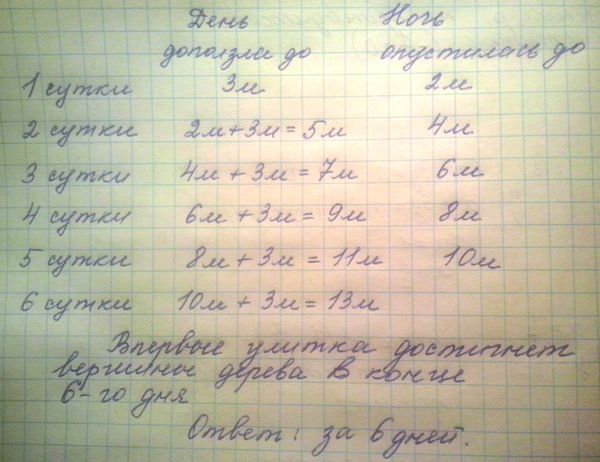 День Ночь
доползла до опустилась до
1 сутки 3м 2м
2 сутки 2м+3м=5м 4м
3 сутки 4м+3м=7м 6м
4 сутки 6м+3м=9м 8м
5 сутки 8м+3м=11м 10м
6 сутки 10м+3м=13м
Впервые улитка достигнет
вершины дерева в конце
6-го дня
Ответ: за 6 дней.